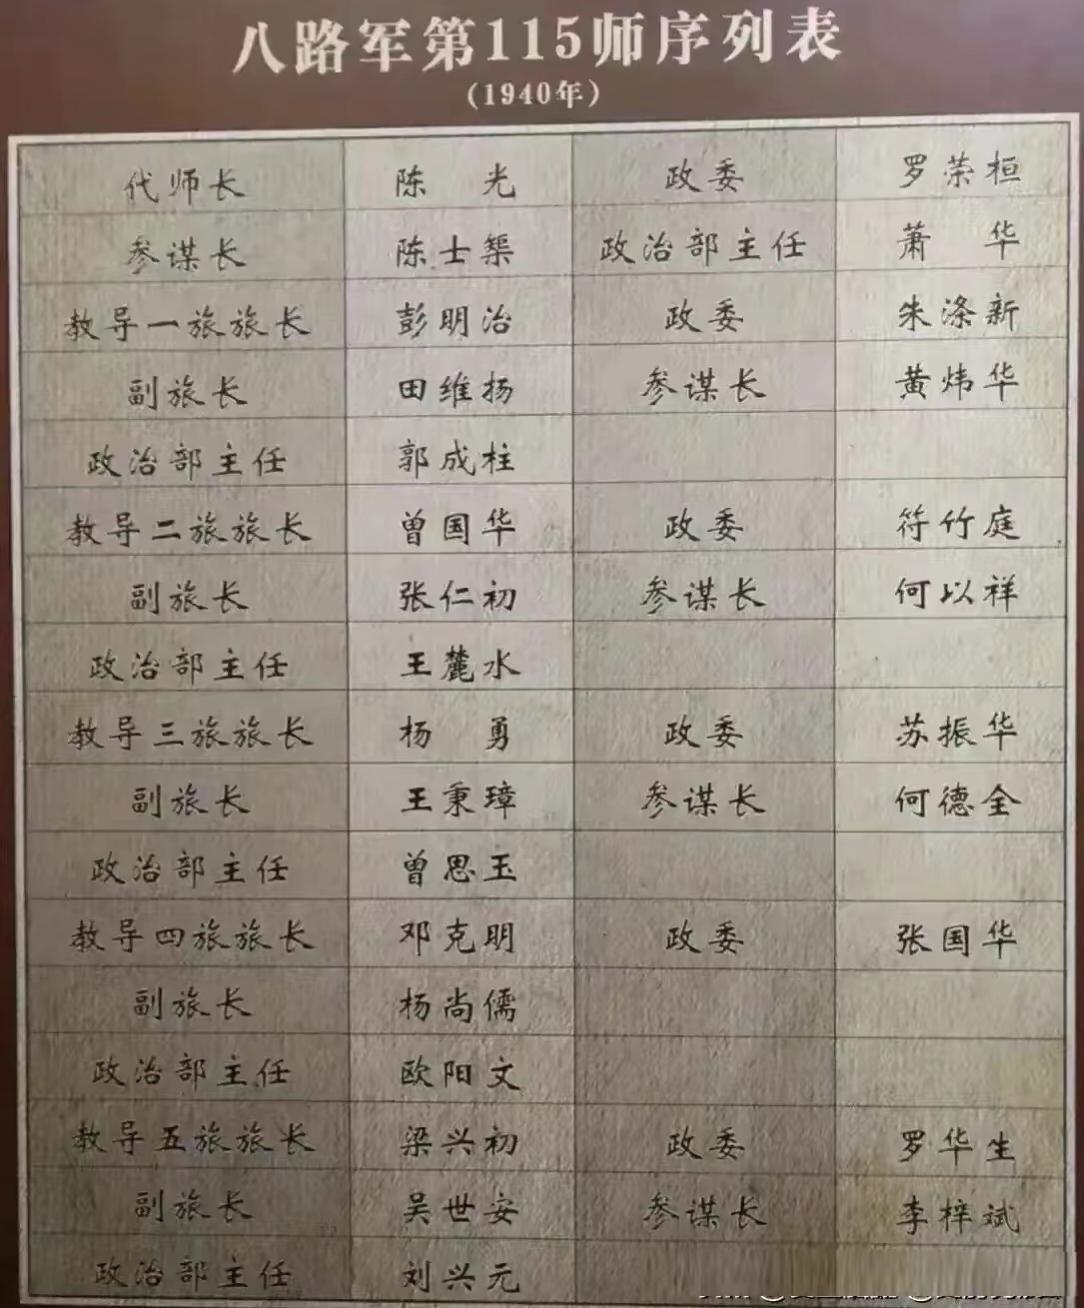 八路军第115师序列表
(1940年)
代师长 陈 光 政委 罗荣桓
参谋长 陈士榘 政治部主任 萧 华
教导一旅旅长 彭明治 政委 朱涤新
副旅长 田维扬 参谋长 黄炜华
政治部主任 郭成柱
教导二旅旅长 曾国华 政委 符竹庭
副旅长 张仁初 参谋长 何以祥
政治部主任 王麓水
教导三旅旅长 杨 勇 政委 苏振华
副旅长 王秉璋 参谋长 何德全
政治部主任 曾思玉
教导四旅旅长 邓克明 政委 张国华
副旅长 杨尚儒
政治部主任 欧阳文
教导五旅旅长 梁兴初 政委 罗华生
副旅长 吴世安 参谋长 李梓斌
政治部主任 刘兴元